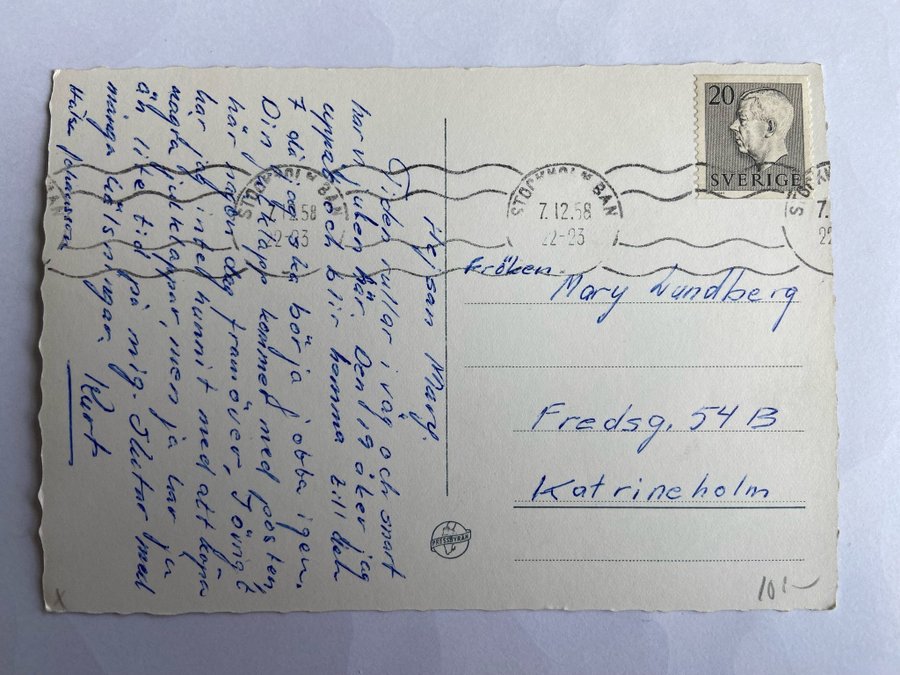 Hejsan Mary.
Tiden rullar i väg och snart
har vi Julen här. Den 19 åker jag
upp och blir hemma till den
7 då jag ska börja jobba igen.
Din julklapp kommer med posten,
här någon dag framöver, i övrigt
har jag intet hunnit med att köpa
några julklappar, men ja har ju
än lite tid på mig. Slutar med
många hälsningar. Kurt
Hälsa
20
SVERIGE
STOCKHOLM BAN
7.12.58
22-23
STOCKHOLM BAN
7.12.58
22-23
Fröken
Mary Lundberg
Fredsg. 54 B
Katrineholm
PRESSBYRÅN
10:-
x